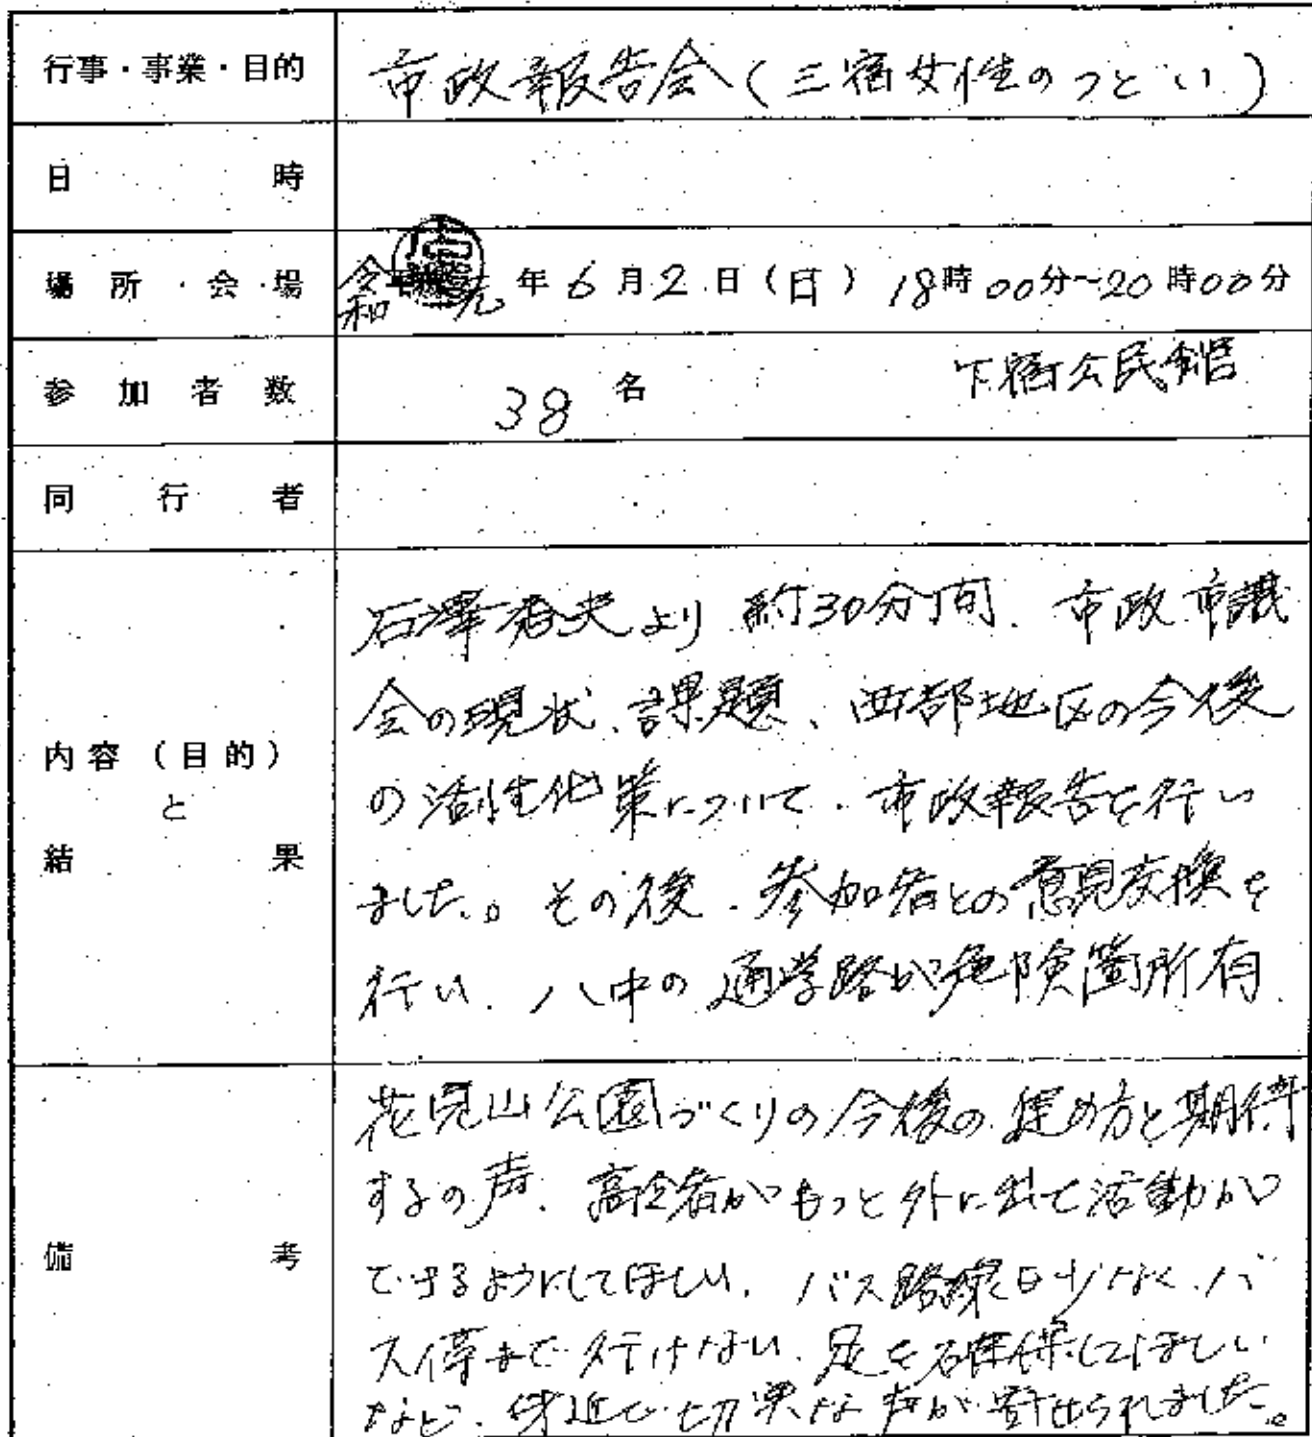 行事・事業・目的 市政報告会(三宿女性のつどい)
日時
場所・会場 令和元年6月2日(日)18時00分~20時00分
参加者数 38名 下宿公民館
同行者
内容(目的)
と
結果
石澤 夫より約30分間、市政市議
会の現状、課題、西部地区の今後
の活性化策について、市政報告を行い
ました。その後、参加者との意見交換を
行い、八中の通学路が危険箇所有
備考
花見山公園づくりの今後の進め方と期待
するの声、高令者がもっと外に出て活動が
できるようにしてほしい、バス路線も少なく、バ
ス停まで行けない、足を確保してほしい
など、身近で切実な声が寄せられました。